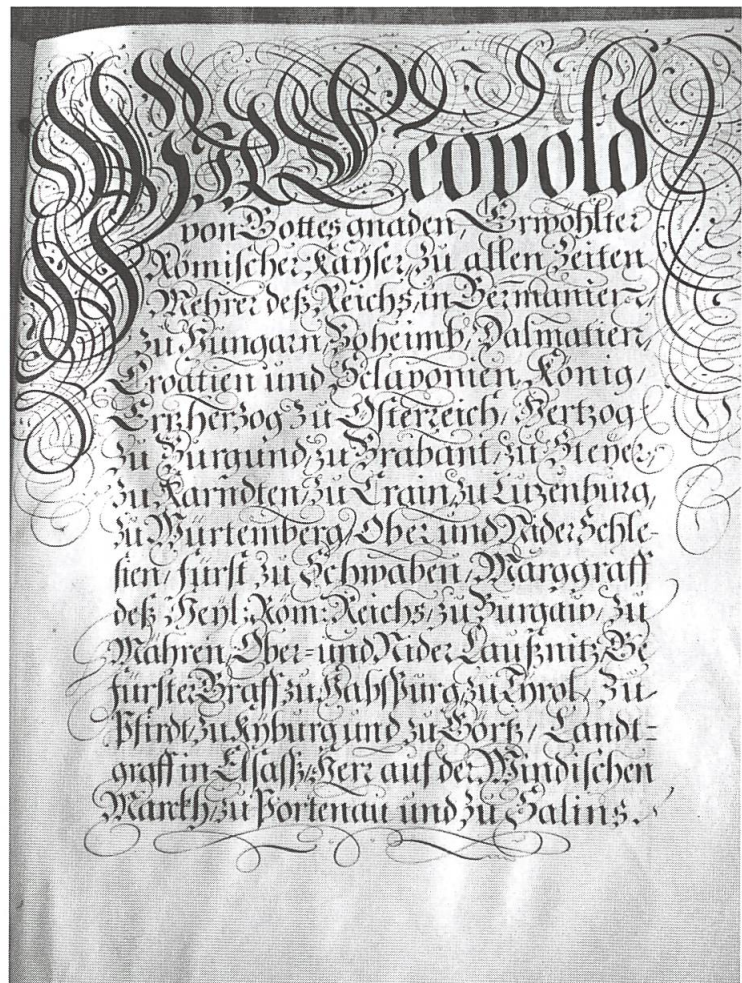 Wir Leopold
von Gottes gnaden, Erwöhlter
Römischer Kayser, zu allen Zeiten
Mehrer deß Reichs, in Germanien,
zu Hungarn, Boheimb, Dalmatien,
Croatien und Sclavonien, König,
Ertzhertzog zu Osterreich, Hertzog
zu Burgund, zu Brabant, zu Steyer,
zu Karndten, zu Crain, zu Luzenburg,
zu Würtemberg, Ober und Nider Schle-
sien, fürst zu Schwaben, Marggraff
deß Heyl: Röm: Reichs, zu Burgaw, zu
Mähren, Ober- und Nider Laußnitz, Ge
fürster Graff zu Habspurg, zu Tyrol, zu
Pfirdt, zu Kyburg und zu Görtz, Landt-
graff in Elsaß, Herr auf der Windischen
Markh, zu Portenau und zu Salins.